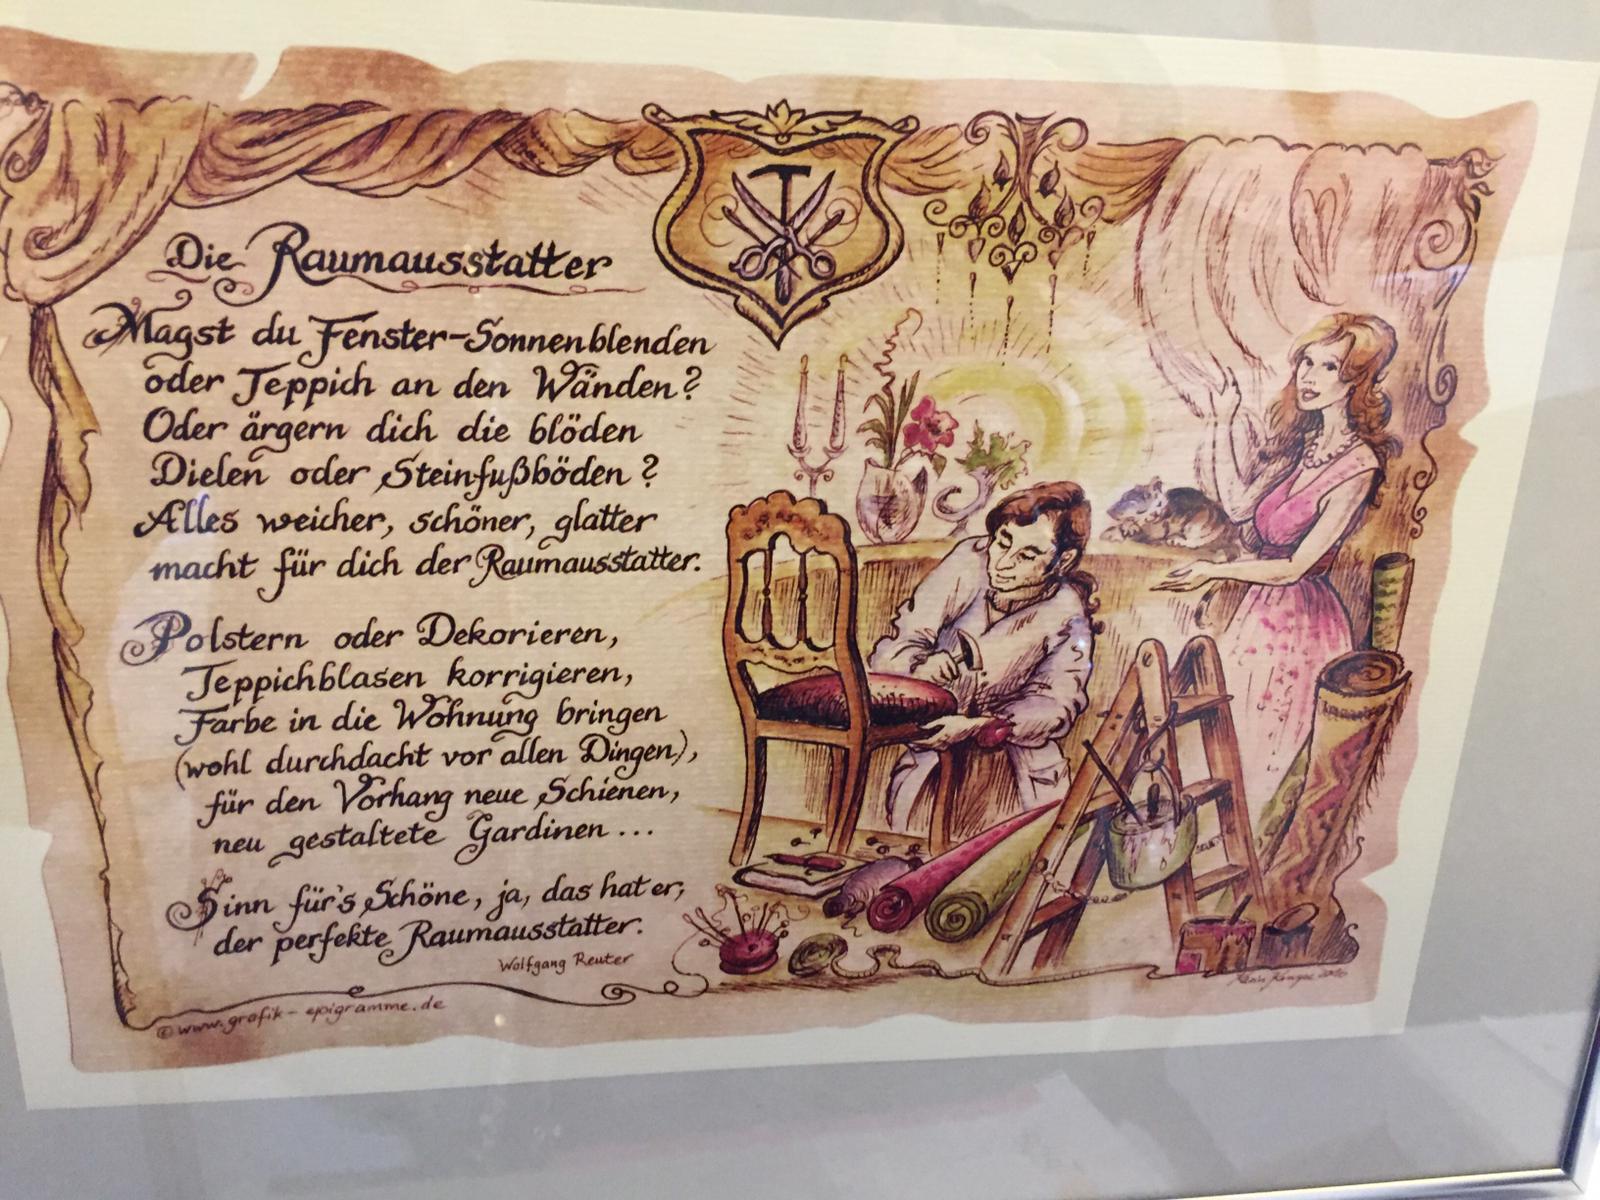 Die Raumausstatter
Magst du Fenster-Sonnenblenden
oder Teppich an den Wänden?
Oder ärgern dich die blöden
Dielen oder Steinfußböden?
Alles weicher, schöner, glatter
macht für dich der Raumausstatter.
Polstern oder Dekorieren,
Teppichblasen korrigieren,
Farbe in die Wohnung bringen
(wohl durchdacht vor allen Dingen),
für den Vorhang neue Schienen,
neu gestaltete Gardinen...
Sinn für's Schöne, ja, das hat er,
der perfekte Raumausstatter.
Wolfgang Reuter
© www.grafik-epigramme.de